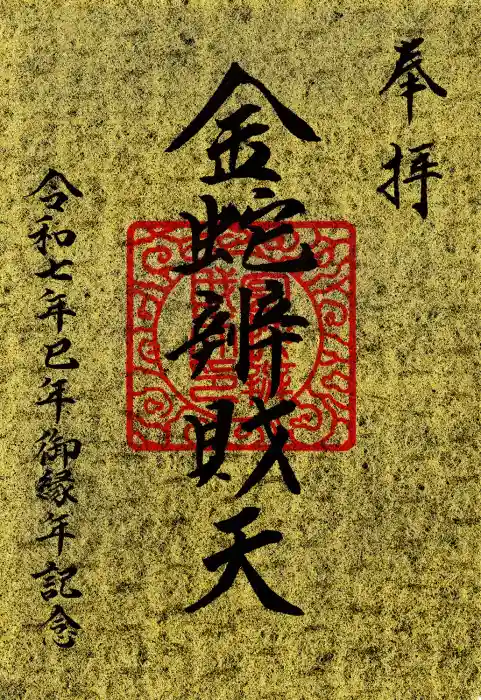 奉拝
金蛇辨財天
令和七年巳年御縁年記念